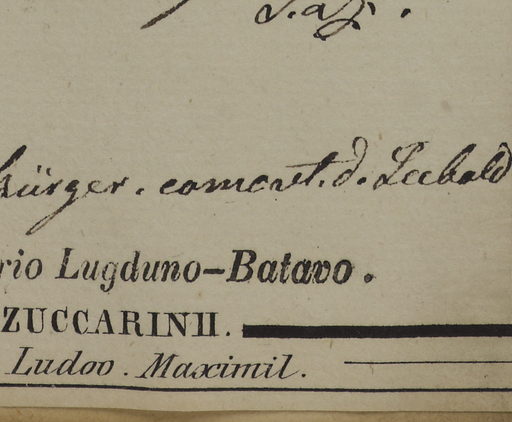 Bürger. comont. d. Siebold
rio Lugduno-Batavo.
ZUCCARINII.
Ludov. Maximil.